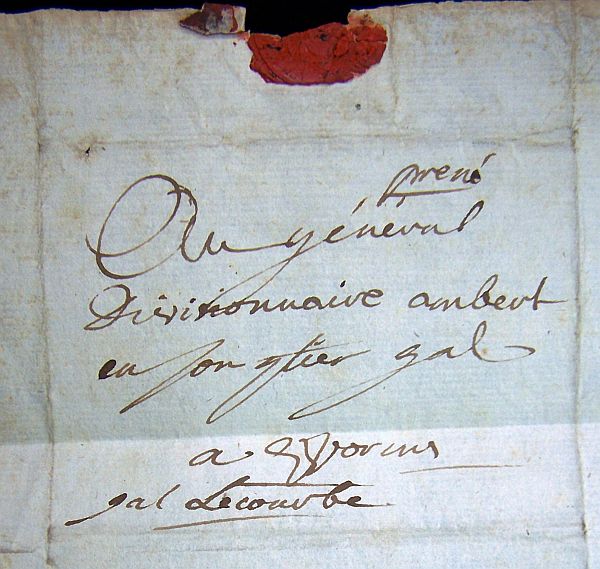 pressé
Au général
Divisionnaire ambert
en son qtier gal
a Worms
gal Lecourbe